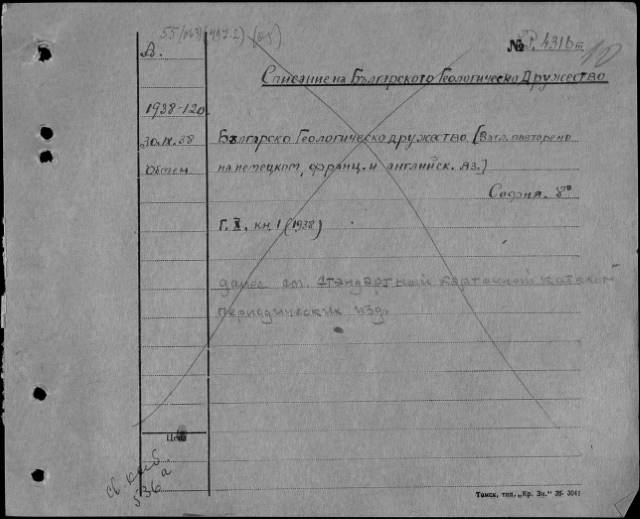 55/063/(497.2) (05)
№ P. 4316 т 10
А.
Списание на Българското Геологическо Дружество
1938-120
30.IX.38
Българско Геологическо дружество. [Загл. повторено
Обмен
на немецком, франц. и английск. яз.]
София. 8°
Г. X, кн. 1 (1938)
далее см. Стандартный карточный каталог
периодических изд.
Цена
св каб.
536 а
Томск, тип. „Кр. Зн.“ 35-3041